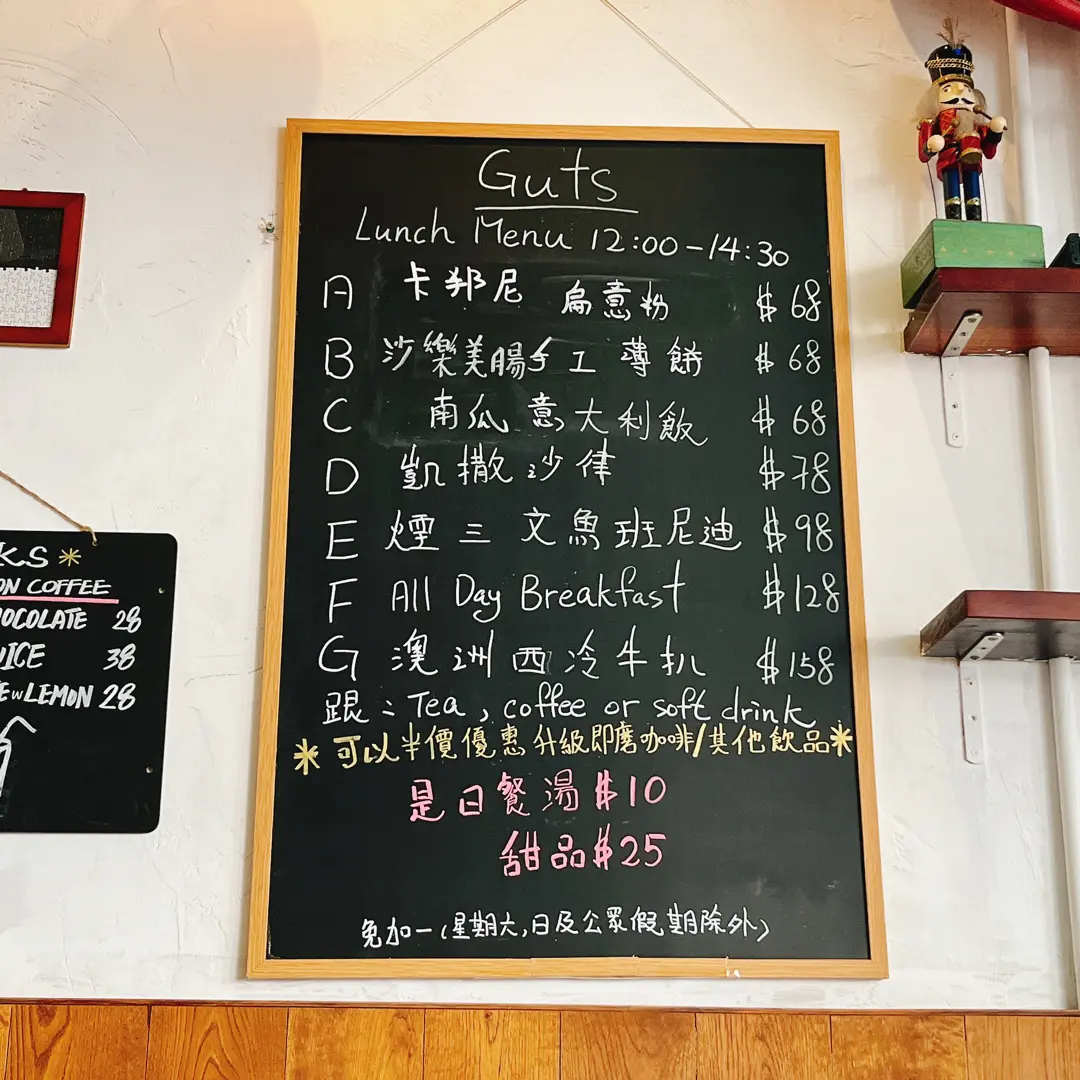 Guts
Lunch Menu 12:00-14:30
A 卡邦尼 扁意粉 $68
B 沙樂美腸手工薄餅 $68
C 南瓜意大利飯 $68
D 凱撒沙律 $78
E 煙三文魚班尼迪 $98
F All Day Breakfast $128
G 澳洲西冷牛扒 $158
跟：Tea, coffee or soft drink
*可以半價優惠升級即磨咖啡/其他飲品*
是日餐湯$10
甜品$25
免加一(星期六,日及公眾假期除外)
KS*
ON COFFEE
OCOLATE 28
ICE 38
E w LEMON 28